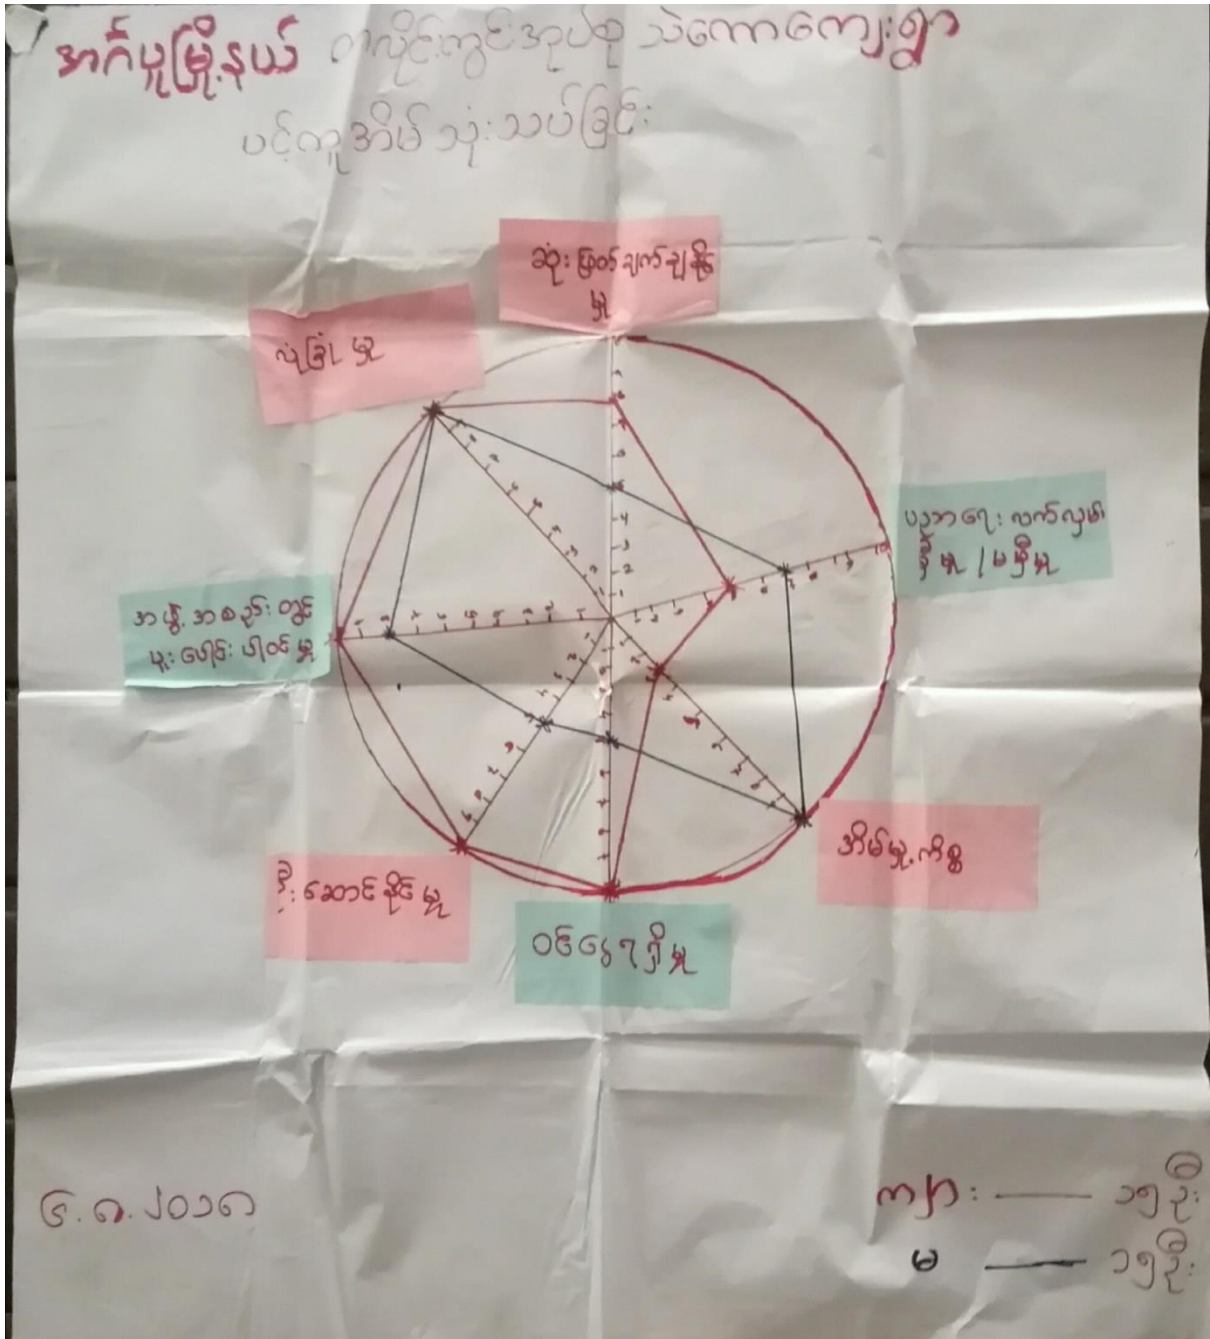 အင်္ဂပူမြို့နယ် တလိုင်းကွင်းအုပ်စု သဲကောကျေးရွာ
ပင့်ကူအိမ် သုံးသပ်ခြင်း
ဆုံးဖြတ်ချက်ချနိုင်
မှု
လုံခြုံမှု
ပညာရေး လက်လှမ်း
မှီမှု / မမှီမှု
အဖွဲ့အစည်းတွင်
ပူးပေါင်းပါဝင်မှု
အိမ်မှုကိစ္စ
ဦးဆောင်နိုင်မှု
ဝင်ငွေရရှိမှု
၆.၈.၂၀၁၈
ကျား ၁၅ဦး
မ ၁၅ဦး